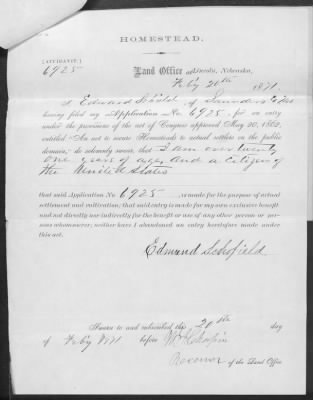 HOMESTEAD.
[AFFIDAVIT.]
6925
Land Office at Lincoln, Nebraska,
Feby 20th 1871
I Edmund Schofield of Saunders Co Neb
having filed my Application No. 6925, for an entry
under the provisions of the act of Congress approved May 20, 1862,
entitled "An act to secure Homesteads to actual settlers on the public
domain," do solemnly swear, that I am over twenty
one years of age, and a citizen of
the United States
that said Application No. 6925, is made for the purpose of actual
settlement and cultivation; that said entry is made for my own exclusive benefit
and not directly nor indirectly for the benefit or use of any other person or per-
sons whomsoever; neither have I abandoned an entry heretofore made under
this act.
Edmund Schofield
Sworn to and subscribed this 20th day
of Feby 1871 before
Receiver of the Land Office